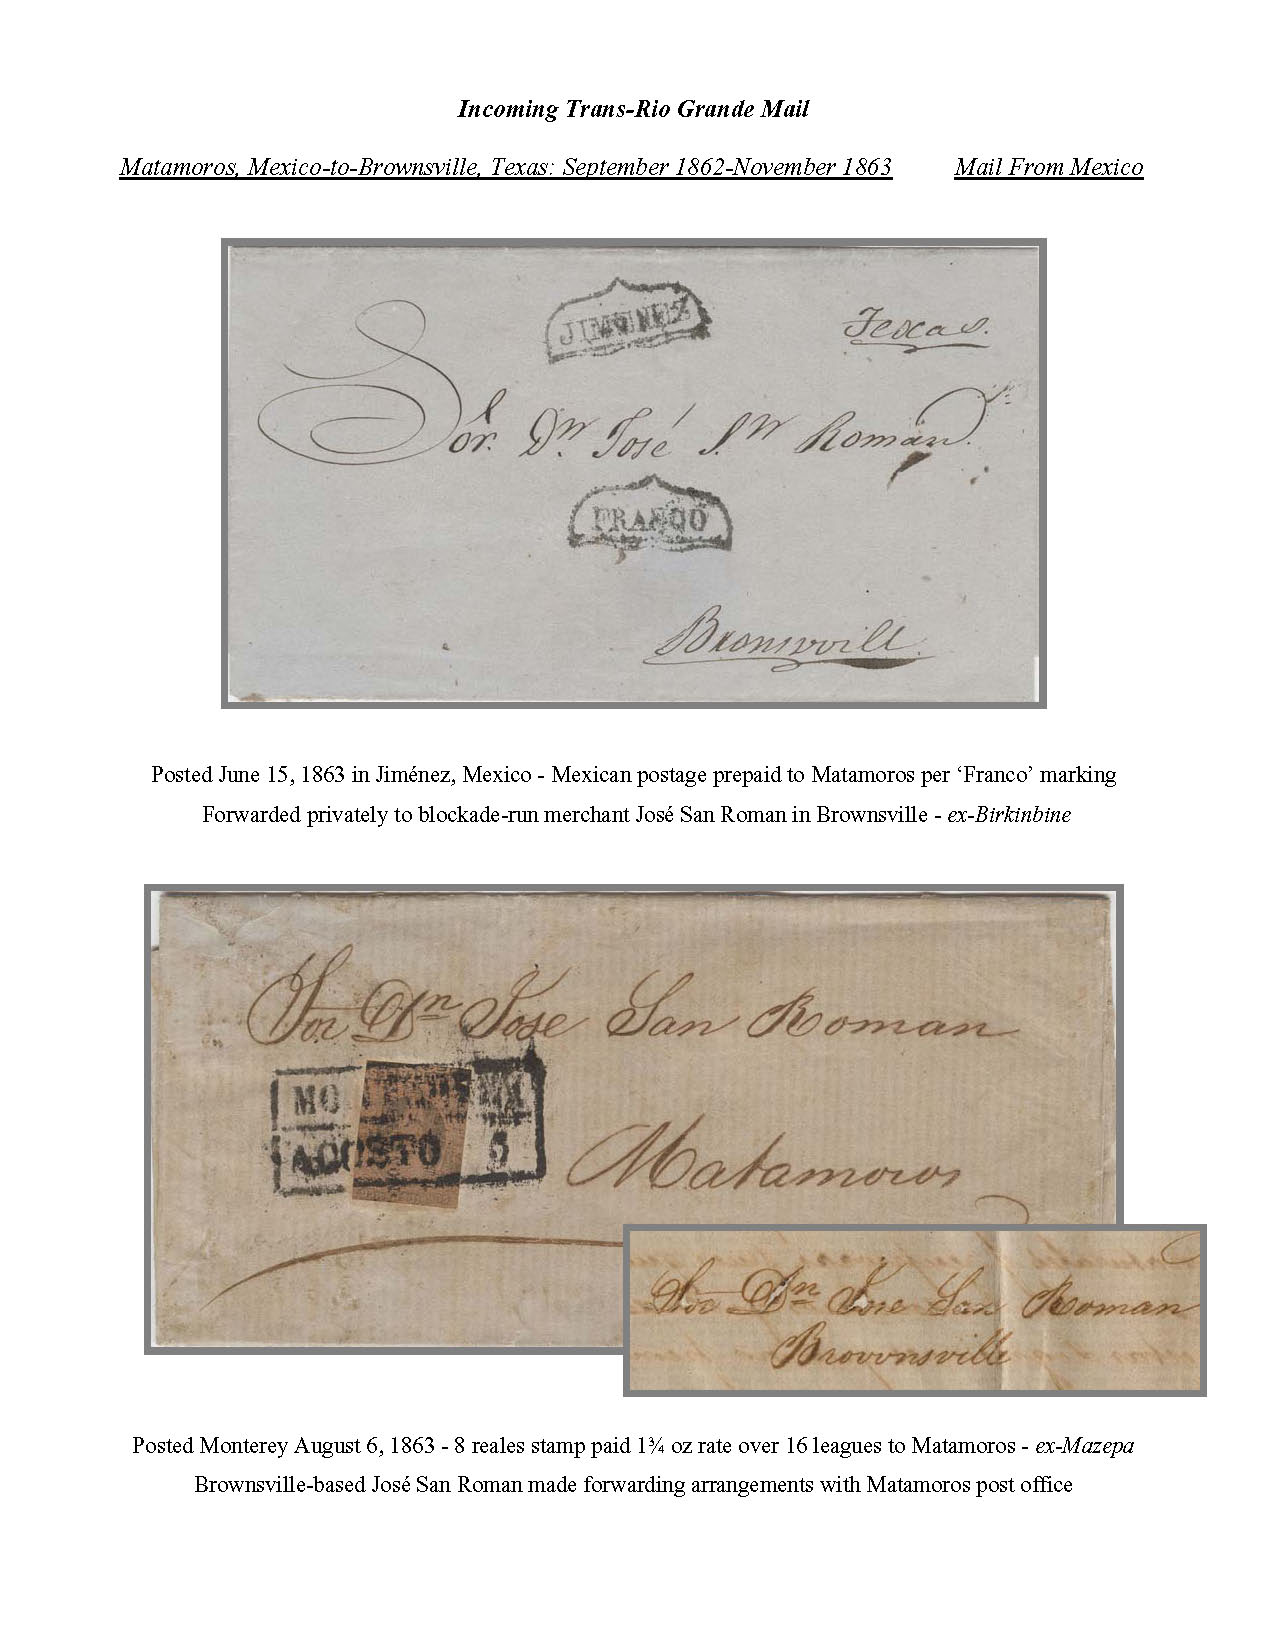 Incoming Trans-Rio Grande Mail
Matamoros, Mexico-to-Brownsville, Texas: September 1862-November 1863 Mail From Mexico
JIMENEZ
Texas.
Sor. Dn. José Sn Roman.
FRANCO
Bronsvvill
Posted June 15, 1863 in Jiménez, Mexico - Mexican postage prepaid to Matamoros per ‘Franco’ marking
Forwarded privately to blockade-run merchant José San Roman in Brownsville - ex-Birkinbine
Sor Dn Jose San Roman
MONTEREY
AGOSTO 6
Matamoros
Sor Dn Jose San Roman
Brovvnsville
Posted Monterey August 6, 1863 - 8 reales stamp paid 1¾ oz rate over 16 leagues to Matamoros - ex-Mazepa
Brownsville-based José San Roman made forwarding arrangements with Matamoros post office